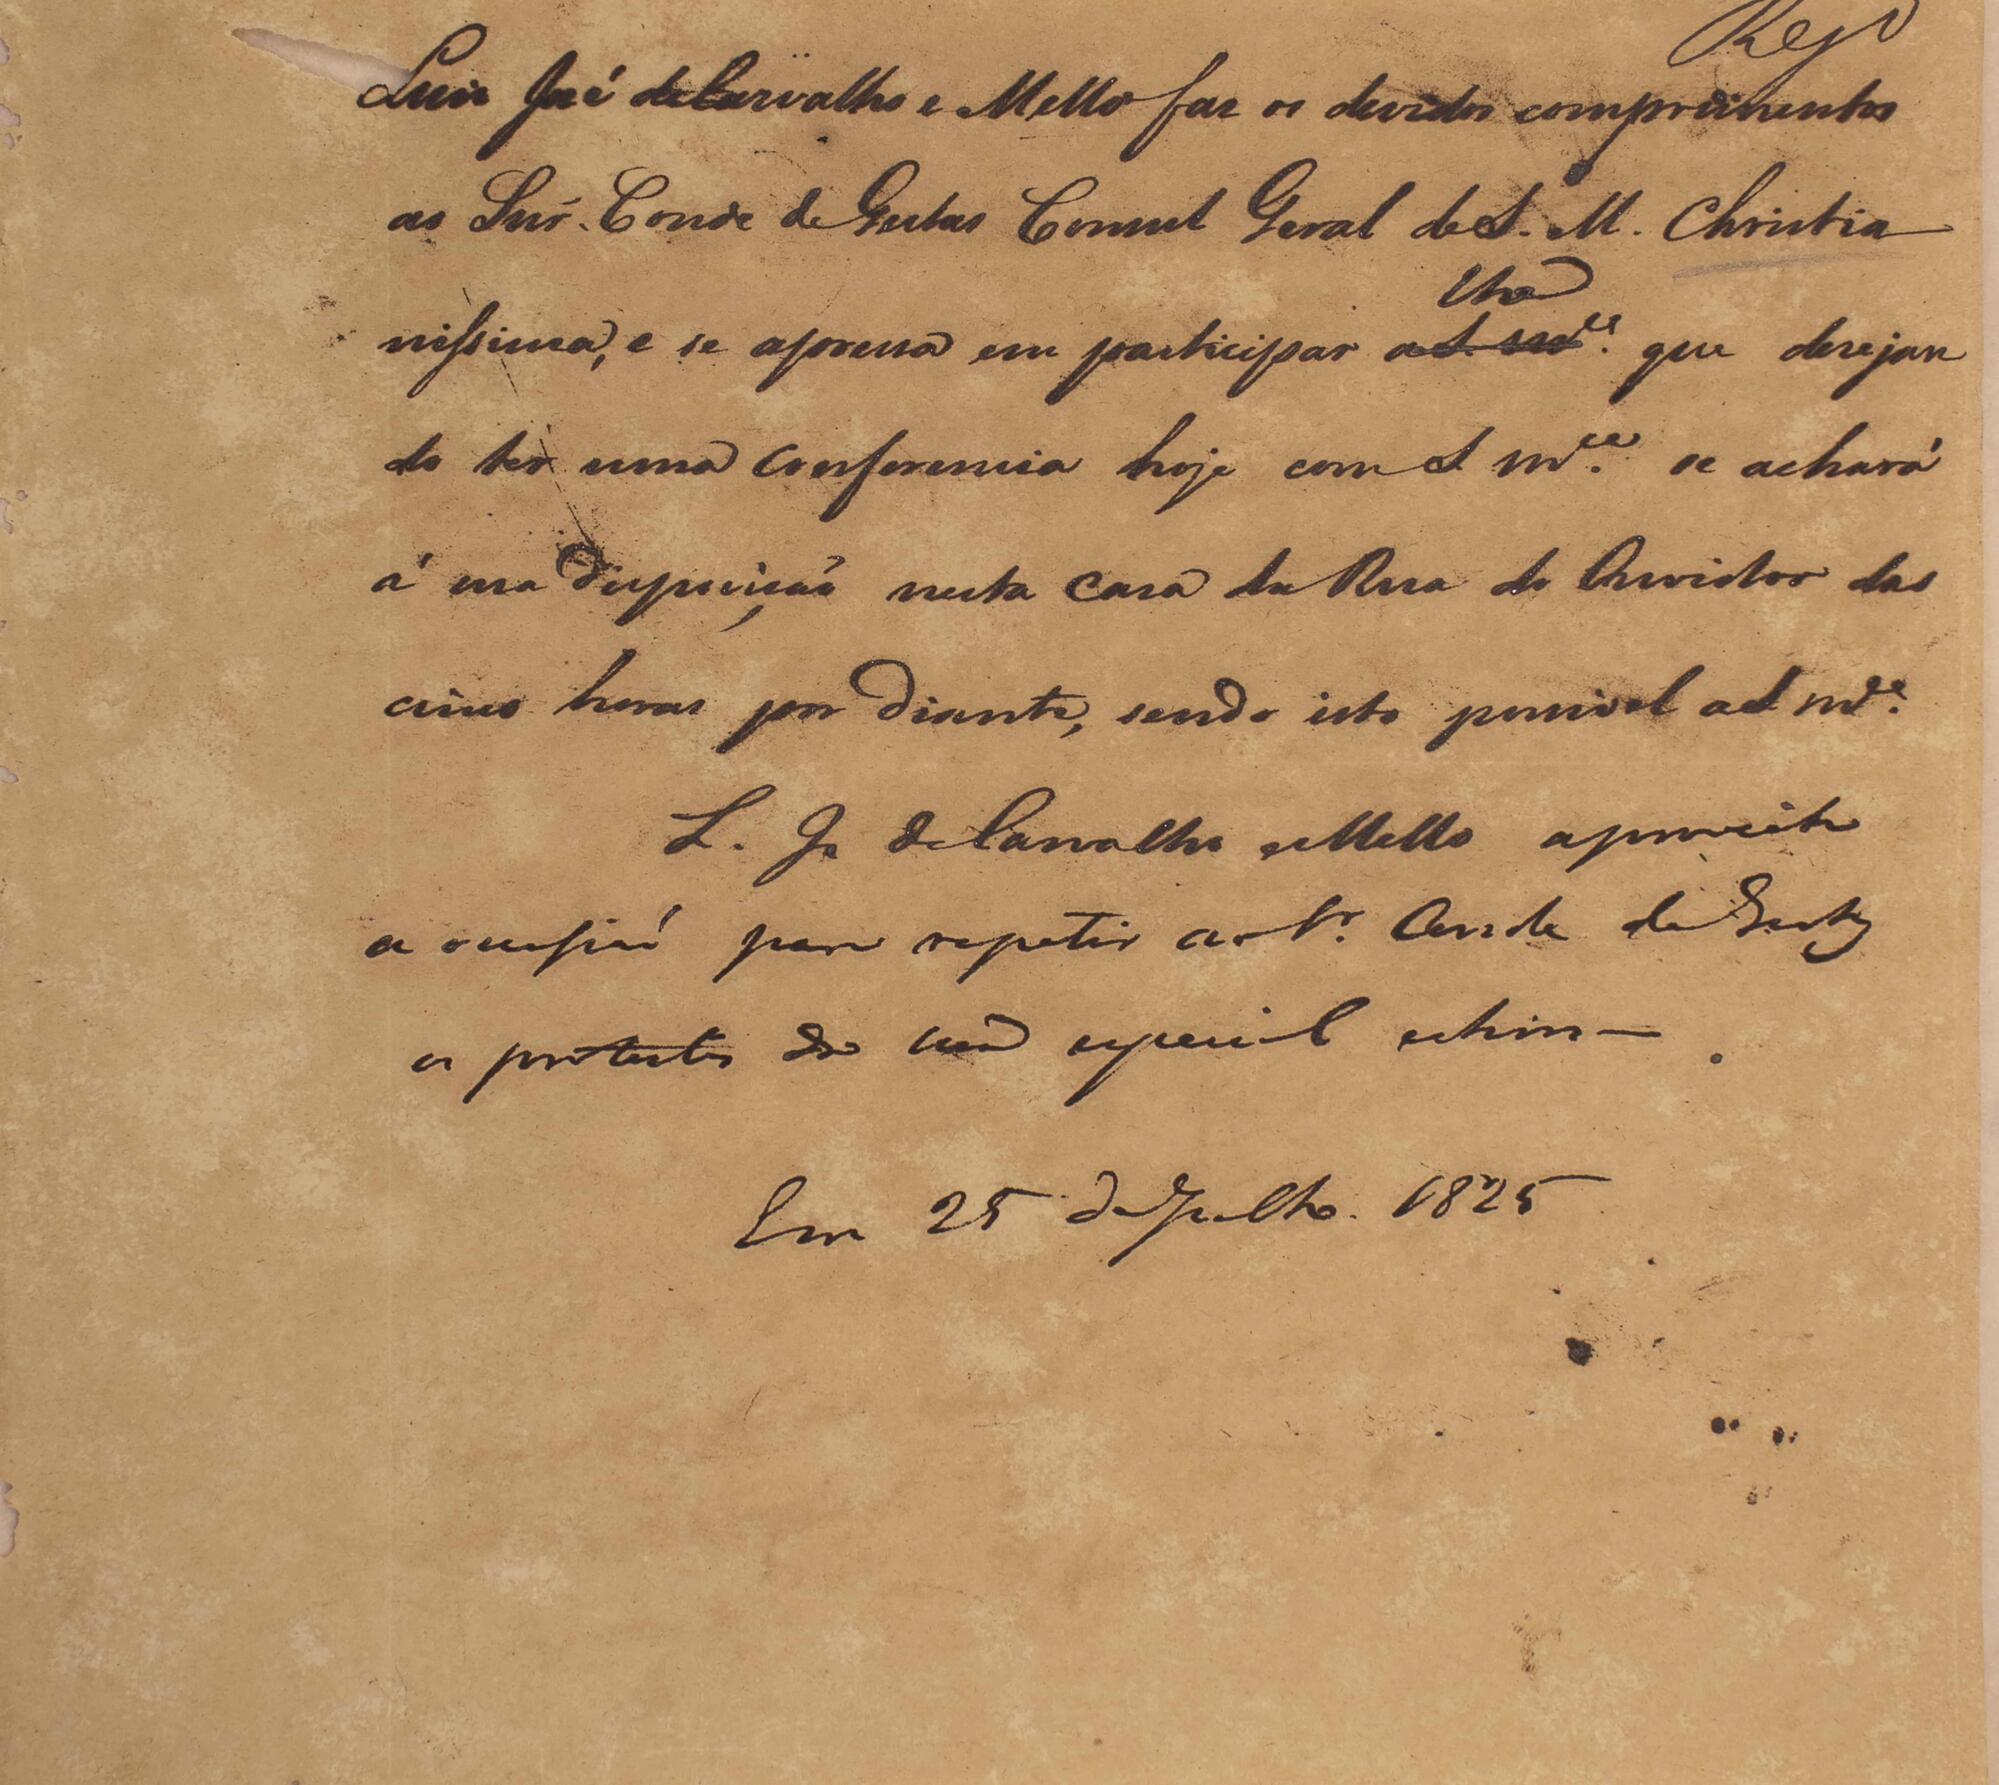 Reg.º
Luiz José de Carvalho e Mello faz os devidos comprimentos
ao Snr. Conde de Gestas Consul Geral de S. M. Christia
nissima, e se apressa em participar lhe a S. m.ce que desejan
do ter uma conferencia hoje com S m.ce se achará
á sua disposição nesta casa da Rua do Ouvidor das
cinco horas por diante, sendo isto possivel a S m.ce
L. J. de Carvalho e Mello aproveita
a occasião para repetir ao Sr. Conde de Gestas
os protestos de sua especial estima.
Em 25 de Julho 1825